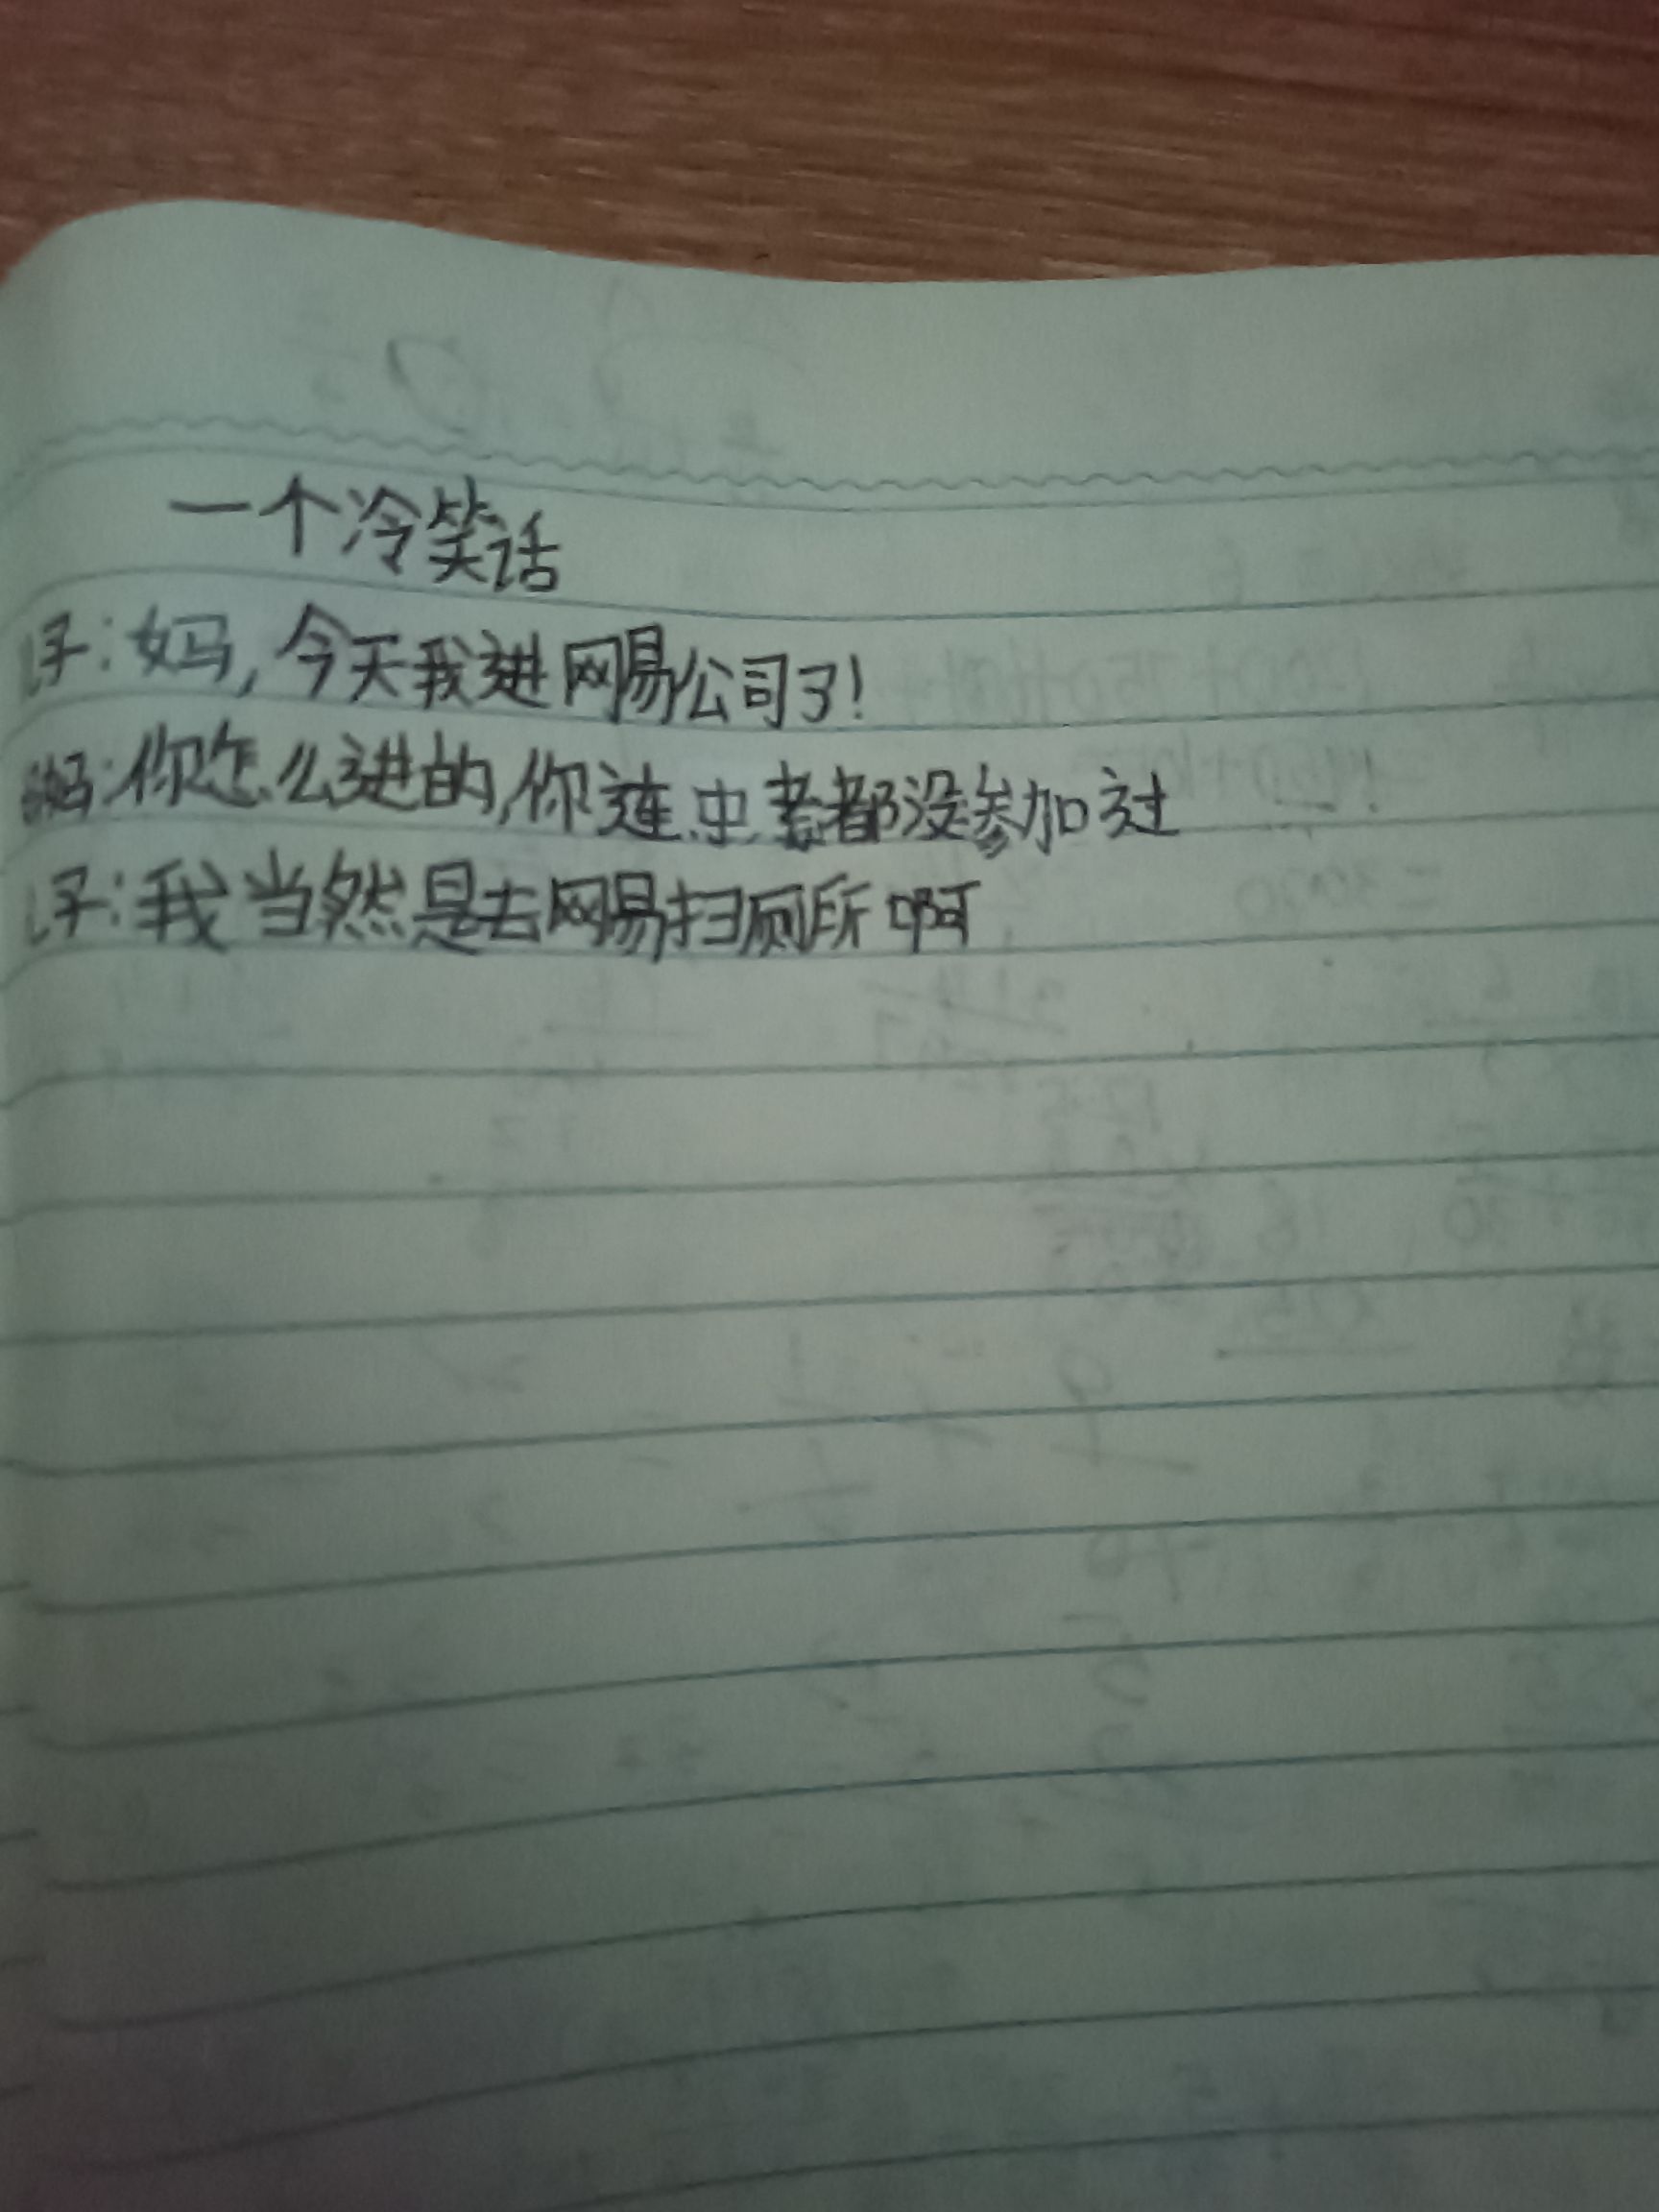 一个冷笑话
儿子:妈,今天我进网易公司了!
妈妈:你怎么进的,你连中考都没参加过
儿子:我当然是去网易扫厕所啊